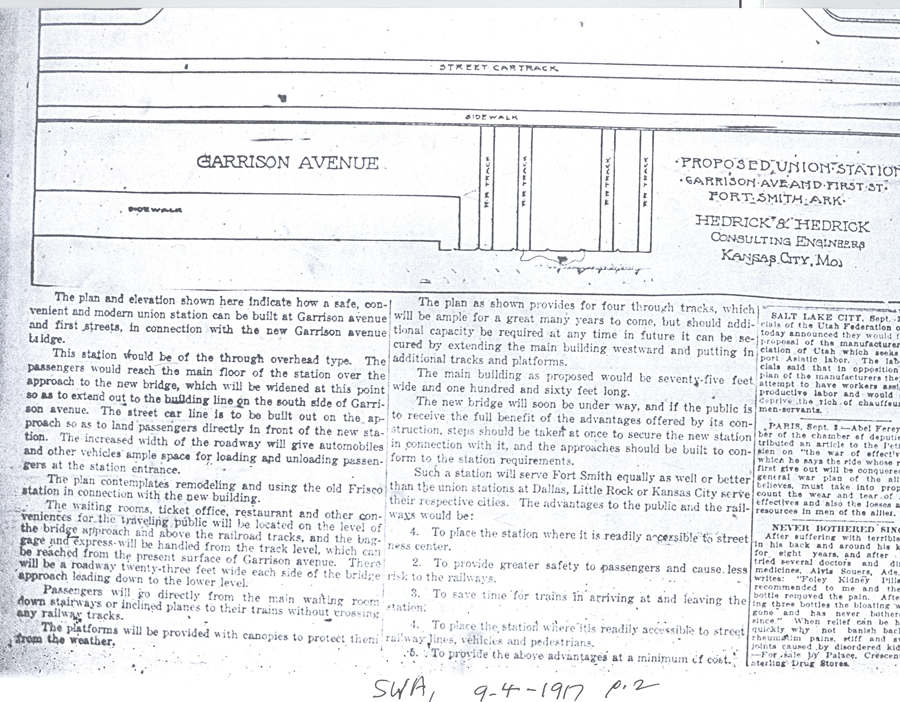 STREET CAR TRACK
SIDEWALK
GARRISON AVENUE
SIDEWALK
R.R. TRACK
R.R. TRACK
R.R. TRACK
R.R. TRACK
PROPOSED UNION STATION
GARRISON AVE AND FIRST ST.
FORT SMITH, ARK.
HEDRICK & HEDRICK
CONSULTING ENGINEERS
KANSAS CITY, MO.
The plan and elevation shown here indicate how a safe, con-
venient and modern union station can be built at Garrison avenue
and first streets, in connection with the new Garrison avenue
bridge.
This station would be of the through overhead type. The
passengers would reach the main floor of the station over the
approach to the new bridge, which will be widened at this point
so as to extend out to the building line on the south side of Garri-
son avenue. The street car line is to be built out on the ap-
proach so as to land passengers directly in front of the new sta-
tion. The increased width of the roadway will give automobiles
and other vehicles ample space for loading and unloading passen-
gers at the station entrance.
The plan contemplates remodeling and using the old Frisco
station in connection with the new building.
The waiting rooms, ticket office, restaurant and other con-
veniences for the traveling public will be located on the level of
the bridge approach and above the railroad tracks, and the bag-
gage and express will be handled from the track level, which can
be reached from the present surface of Garrison avenue. There
will be a roadway twenty-three feet wide each side of the bridge
approach leading down to the lower level.
Passengers will go directly from the main waiting room
down stairways or inclined planes to their trains without crossing
any railway tracks.
The platforms will be provided with canopies to protect them
from the weather.
The plan as shown provides for four through tracks, which
will be ample for a great many years to come, but should addi-
tional capacity be required at any time in future it can be se-
cured by extending the main building westward and putting in
additional tracks and platforms.
The main building as proposed would be seventy-five feet
wide and one hundred and sixty feet long.
The new bridge will soon be under way, and if the public is
to receive the full benefit of the advantages offered by its con-
struction, steps should be taken at once to secure the new station
in connection with it, and the approaches should be built to con-
form to the station requirements.
Such a station will serve Fort Smith equally as well or better
than the union stations at Dallas, Little Rock or Kansas City serve
their respective cities. The advantages to the public and the rail-
ways would be:
To place the station where it is readily accessible to street
ness center.
2. To provide greater safety to passengers and cause less
risk to the railways.
3. To save time for trains in arriving at and leaving the
station.
4. To place the station where itis readily accessible to street
railway lines, vehicles and pedestrians.
5. To provide the above advantages at a minimum of cost.
SALT LAKE CITY, Sept.
cials of the Utah Federation o
today announced they would f
proposal of the manufacturer
ciation of Utah which seeks
port Asiatic labor. The lab
cials said that in opposition
plan of the manufacturers the
attempt to have workers assi
productive labor and would
deprive the rich of chauffeu
men-servants.
PARIS, Sept. 3—Abel Ferey
ber of the chamber of deputi
tributed an article to the Peti
sien on "the war of effectiv
which he says the side whose r
first give out will be conquered
general war plan of the alli
believes, must take into prop
count the wear and tear of
effectives and also the losses a
resources in men of the allier.
NEVER BOTHERED SINC
After suffering with terrible
in his back and around his k
for eight years, and after
tried several doctors and di
medicines, Alvis Souers, Ade,
writes: "Foley Kidney Pills
recommended to me and the
bottle removed the pain. Afte
ing three bottles the bloating w
gone and has never bother
since." When relief can be h
quickly why not banish back
rheumatism pains, stiff and sw
joints caused by disordered kid
—For sale by Palace, Crescen
sterling Drug Stores.
SWA, 9-4-1917 p.2